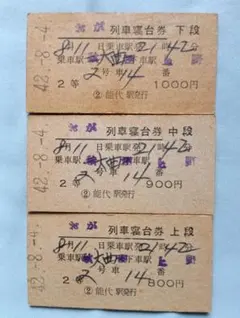 42.-8.-4
おが 列車寝台券 下段
8月11日乗車駅発21時42分
乗車駅 大曲 下車駅 上野
2号車 14番
2等 1000円
② 能代駅発行
42.-8.-4
おが 列車寝台券 中段
8月11日乗車駅発21時42分
乗車駅 大曲 下車駅 上野
2号車 14番
2等 900円
② 能代駅発行
42.-8.-4
おが 列車寝台券 上段
8月11日乗車駅発21時42分
乗車駅 大曲 下車駅 上野
2号車 14番
2等 800円
② 能代駅発行